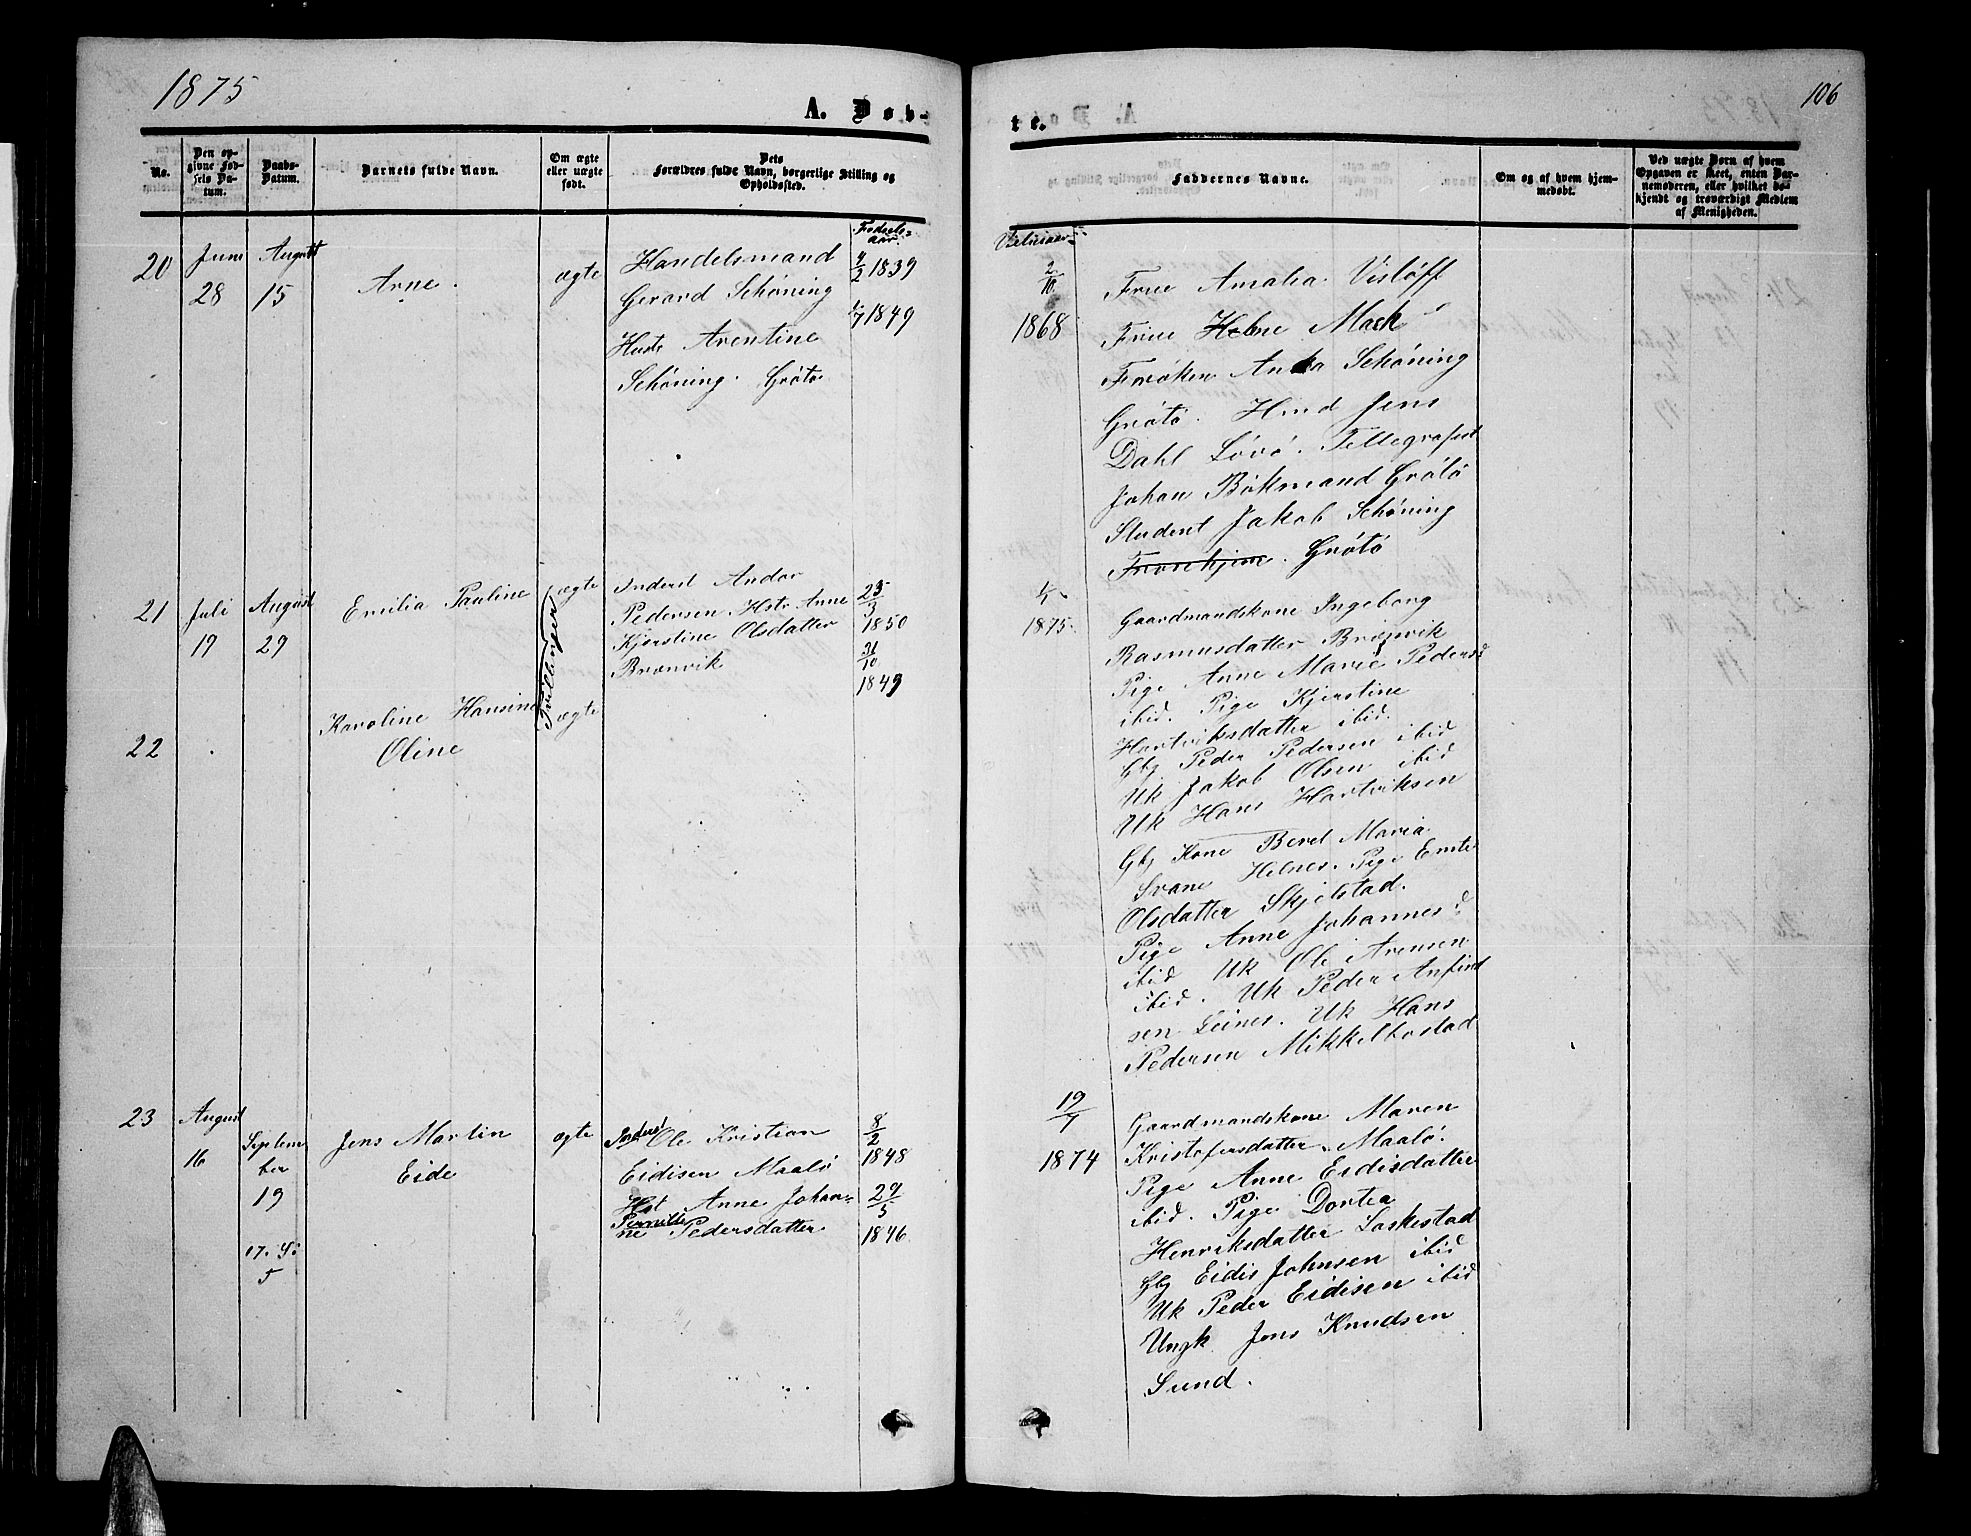 1875
106
A. Døb-
te.
No.
Den op-
givne Fød-
sels Da-
tum.
Daabs-
Datum.
Barnets fulde Navn.
Om ægte
eller uægte
født.
Dets
Forældres fulde Navn, borgerlige Stilling og
Opholdssted.
Faddernes Navne.
Om og af hvem hjem-
medøbt.
Ved uægte Børn af hvem
Opgaven er skeet, enten Bar-
nemoderen, eller hvilket be-
kjendt og troværdigt Medlem
af Menigheden.
Fødsels-
aar.
Vielsesaar
20
Juni
28
August
15
Arne.
ægte
Handelsmand
Gerard Schøning
Hust Arentine
Schøning. Grøtø
4/2 1839
1/7 1849
2/10
1868
Frue Amalia Visløff
Frue Helene Mack
Frøken Anna Schøning
Grøtø. Hind Jens
Dahl Løvø. Tellegrafist
Johan Bøkmand Grøtø
Student Jakob Schøning
Grøtø
21
Juli
19
August
29
Emilia Pauline
ægte
Tvillinger
Inderst Andor
Pedersen Hstr Anne
Kjerstine Olsdatter
Brønvik
23/3
1850
31/10
1849
1875.
Gaardmandskone Ingeborg
Rasmusdatter Brønvik
Pige Anne Marie Pedersd
ibid. Pige Kjerstine
Hartviksdatter ibid.
Gbj Peder Pedersen ibid
Uk Jakob Olsen ibid
Uk Hans Hartviksen
22
Karoline Hansine
Oline
ægte
Gbj Kone Berel Maria
Svane Helnes. Pige Emte
Olsdatter Skjelstad.
Pige Anne Johannesd
ibid Uk Ole Arensen
ibid. Uk Peder Anfind
sen Leines. Uk Hans
Pedersen Mikkelbostad
23
August
16
Septem
ber
19
17. S:
5
Jens Martin
Eide
ægte
Inderst Ole Kristian
Eidisen Maalø
Hst Anne Johan-
Pernille
ne Pedersdatter
8/2
1848
29/5
1846
19/7
1874
Gaardmandskone Maren
Kristofersdatter Maalø.
Pige Anne Eidisdatter
ibid. Pige Dortea
Henriksdatter Laskestad
Gbj Eidis Johnsen ibid
Uk Peder Eidisen ibid
Ungk Jens Knudsen
Sund.